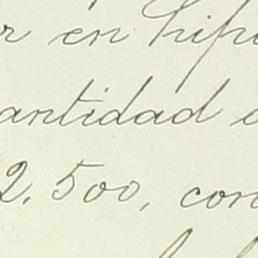 r en hipo
antidad d
2,500, con